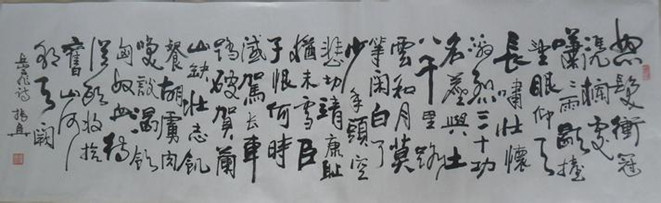 怒髮衝冠
憑欄處
瀟雨歇抬
望眼仰天
長嘯壯懷
激烈三十功
名塵與土
八千里路
雲和月莫
等閑白了
少年頭空
悲切靖康恥
猶未雪臣
子恨何時
滅駕長車
踏破賀蘭
山缺壯志飢
餐胡虜肉
笑談渴飲
匈奴血待
從頭收拾
舊山河
朝天闕
岳飛詩